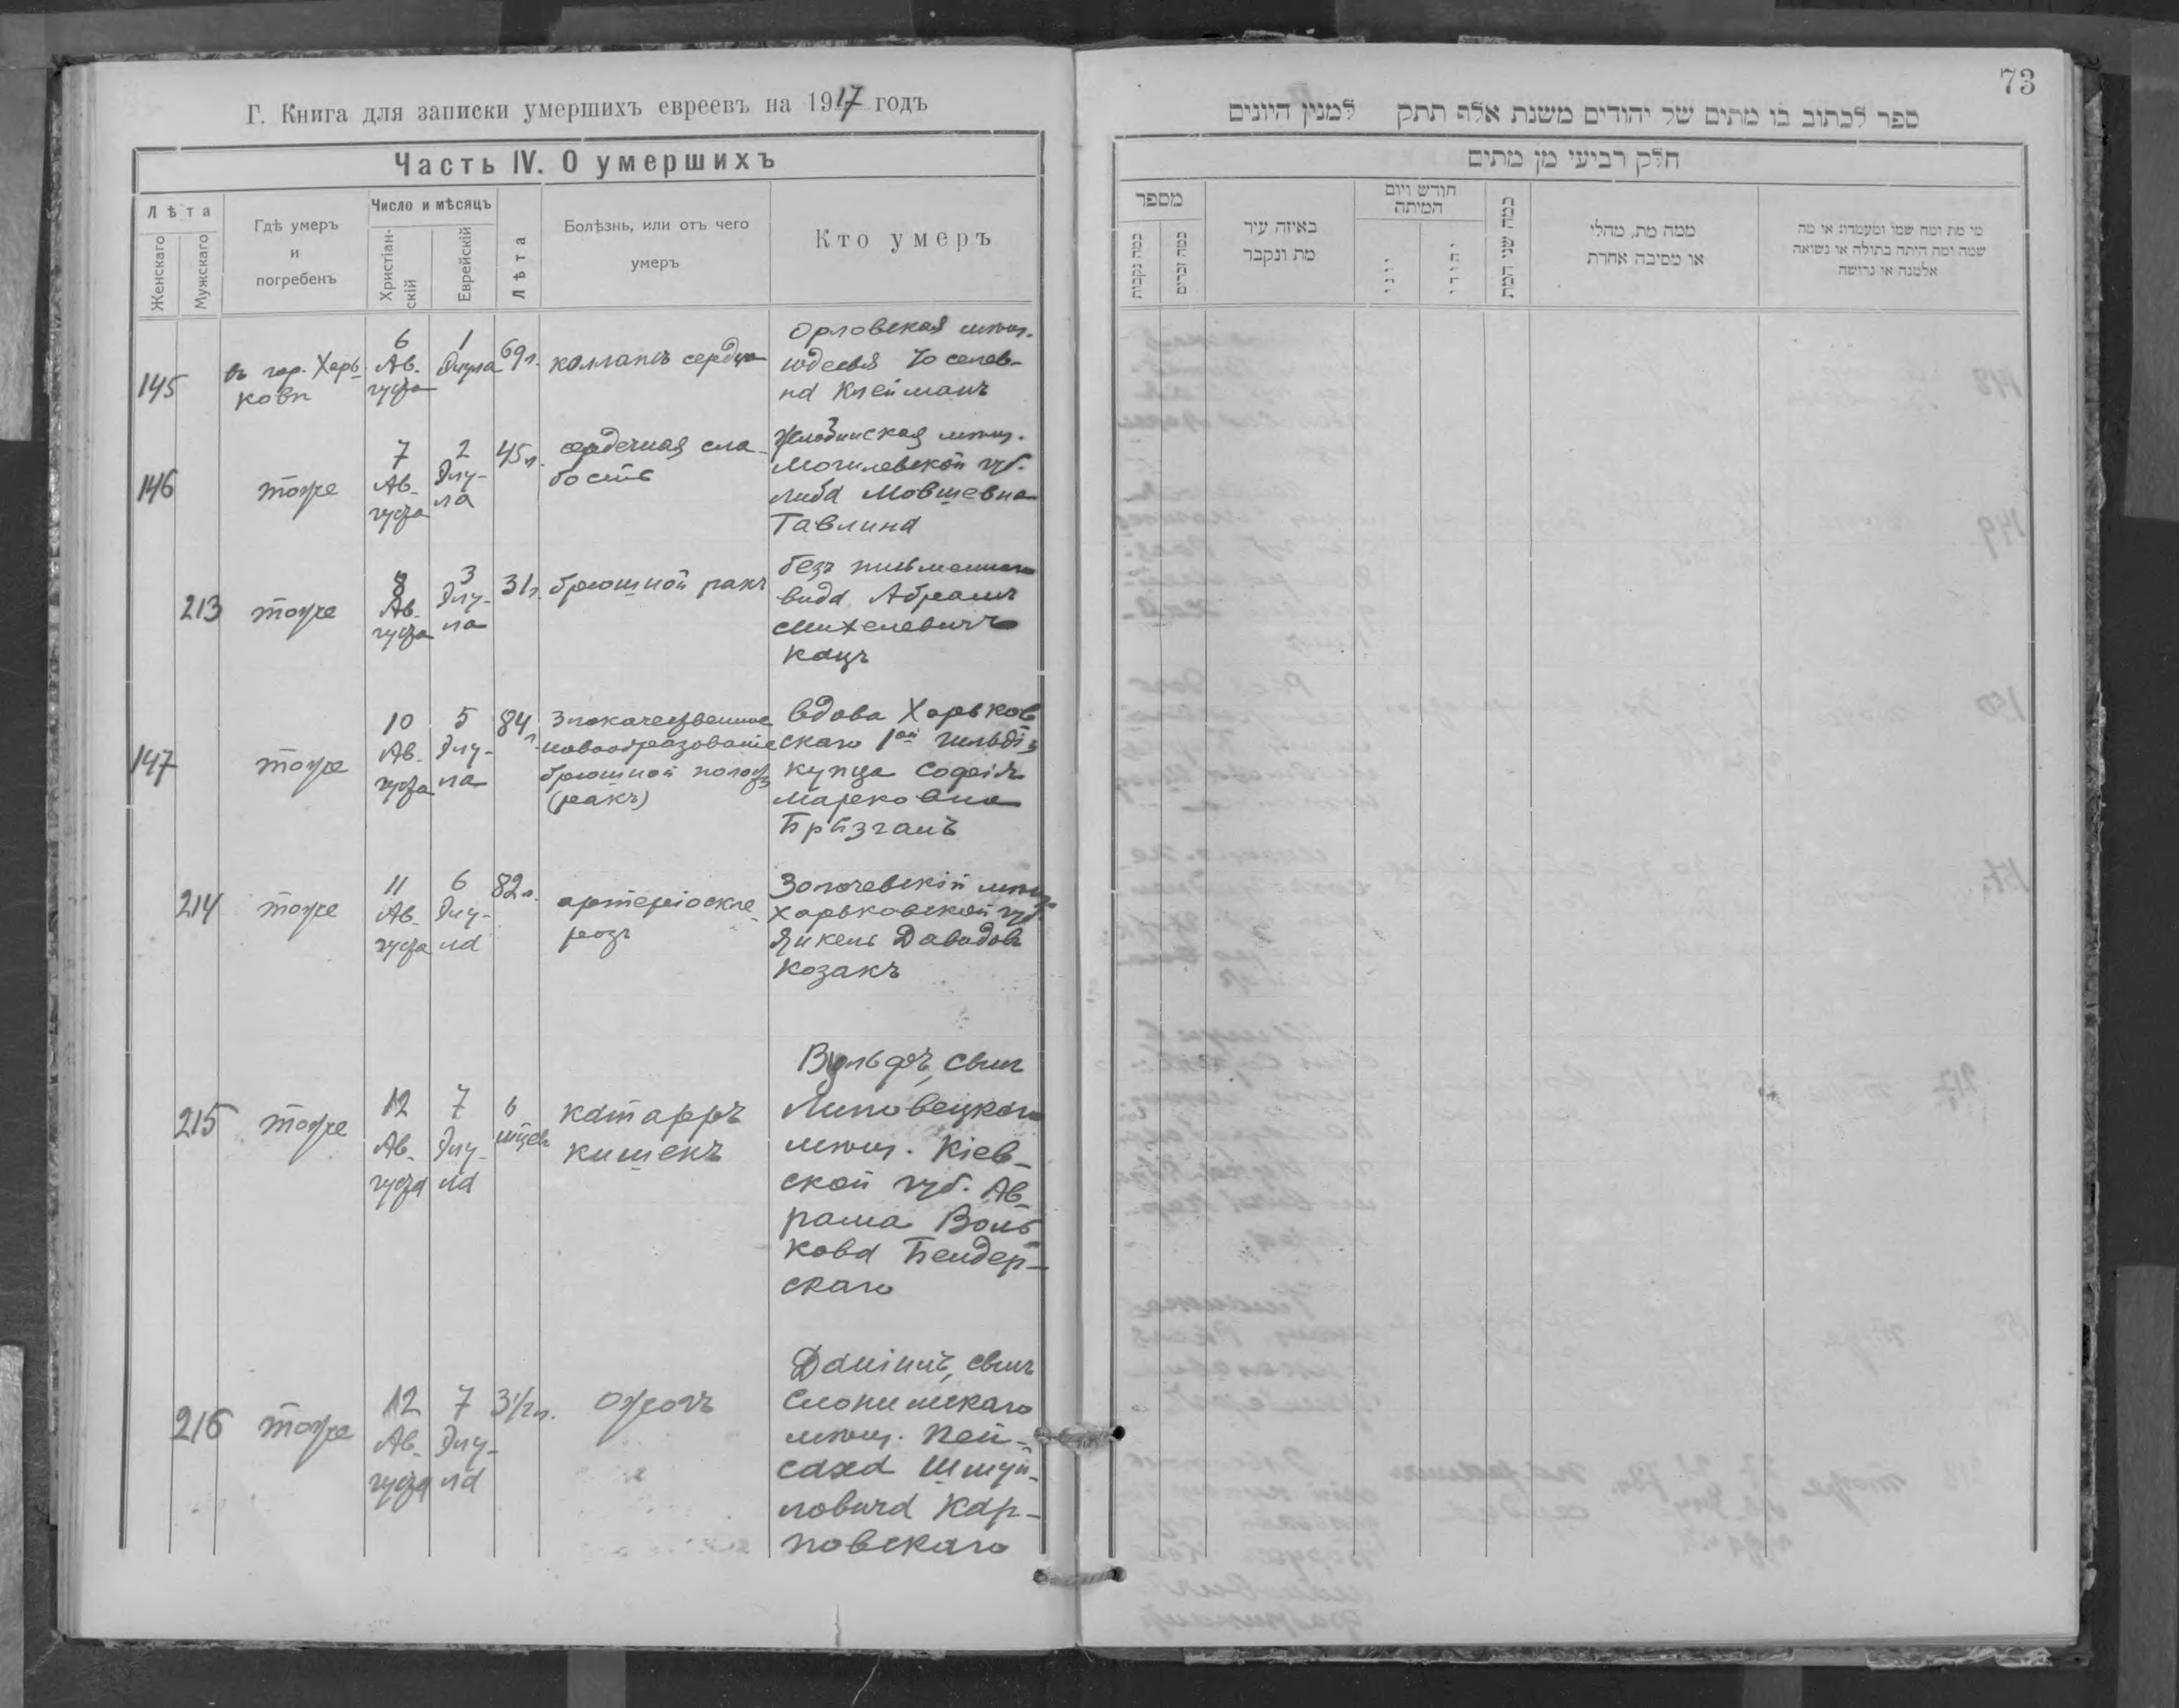 Г. Книга для записки умершихъ евреевъ на 1917 годъ
Часть IV. О умершихъ
Лѣта
Женскаго
Мужскаго
Гдѣ умеръ
и
погребенъ
Число и мѣсяцъ
Христіан-
скій
Еврейскій
Лѣта
Болѣзнь, или отъ чего
умеръ
Кто умеръ
145
въ гор. Харь-
ковѣ
6
Ав-
густа
1
Элула
69 л.
коллапсъ сердца
Орловская мѣщ.
Іоселев-
на Клейманъ
146
тоже
7
Ав-
густа
2
Элу-
ла
45 л.
сердечная сла-
бость
мѣщ.
Могилевской губ.
Либа Мовшевна
Тавлина
213
тоже
8
Ав-
густа
3
Элу-
ла
31 л.
брюшной ракъ
безъ письменнаго
вида Абрамъ
Михелевичъ
Кацъ
147
тоже
10
Ав-
густа
5
Элу-
ла
84 л.
Злокачественное
новообразованіе
брюшной полости
(ракъ)
вдова Харьков
скаго 1ой гильдіи
купца Софія
Марковна
Брѣзганъ
214
тоже
11
Ав-
густа
6
Элу-
ла
82 л.
артеріоскле-
розъ
Золочевскій мѣщ.
Харьковской губ.
Янкель Давидов
Козакъ
215
тоже
12
Ав-
густа
7
Элу-
ла
6
мѣсѣц.
катарръ
кишекъ
Вульфъ, сынъ
Липовецкаго
мѣщ. Кіев-
ской губ. Ав-
рама Воль-
кова Бендер-
скаго
216
тоже
12
Ав-
густа
7
Элу-
ла
3½ л.
ожогъ
Даніилъ, сынъ
Слонимскаго
мѣщ. Пей-
саха Шмуй-
ловича Кар-
повскаго
73
ספר לכתוב בו מתים של יהודים משנת אלף תתק למנין היונים
חלק רביעי מן מתים
מספר
כמה נקבות
כמה זכרים
באיזה עיר
מת ונקבר
חודש ויום
המיתה
יוני
יהודי
כמה שני המת
ממה מת, מחלי
או מסיבה אחרת
מי מת ומה שמו ומעמדו או מה
שמה ומה היתה בתולה או נשואה
אלמנה או גרושה